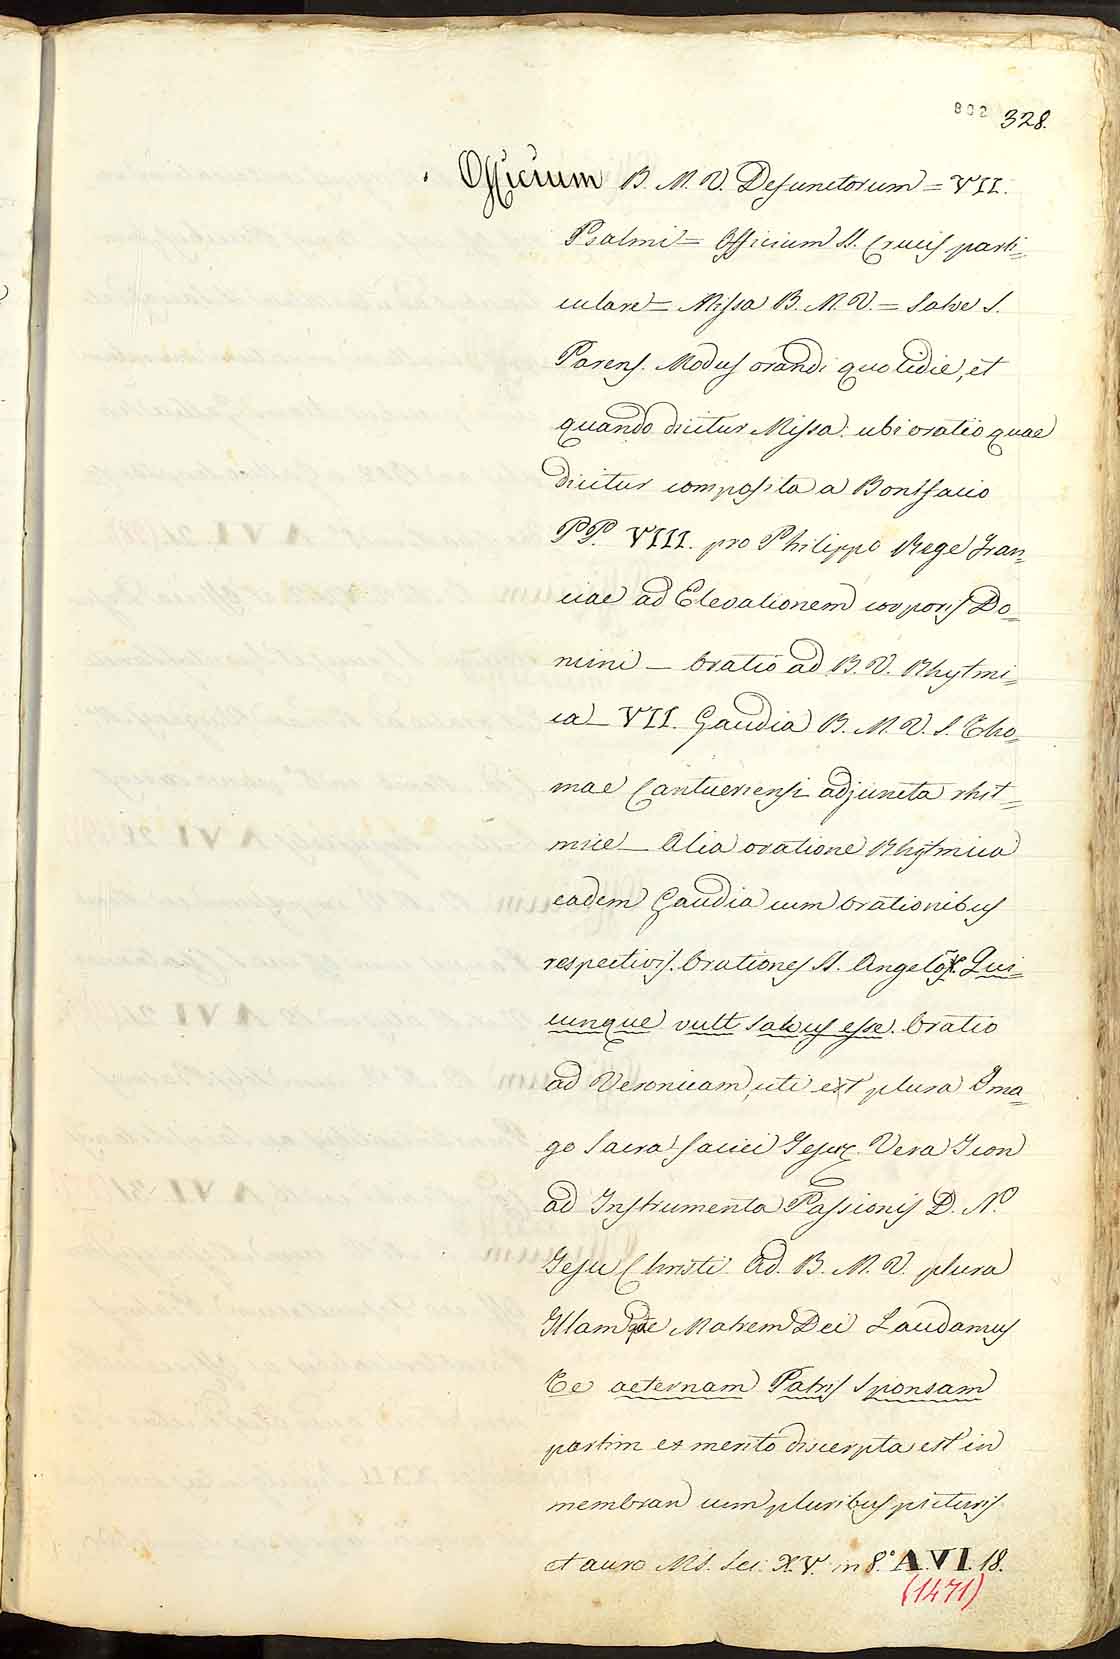 802 328.
Officium B. M. V. Defunctorum = VII.
Psalmi = Officium SS. Crucis parti=
culare = Missa B. M. V. = Salve S.
Parens. Modus orandi quotidie, et
quando dicitur Missa: ubi oratio quae
dicitur composita a Bonifacio
PP. VIII. pro Philippo Rege Fran=
ciae ad Elevationem corporis Do=
mini — Oratio ad B. V. Rhytmi=
ca — VII. Gaudia B. M. V. S. Tho=
mae Cantueriensi adjuncta rhit=
mice — Alia oratione Rhytmica
eadem Gaudia cum Orationibus
respectivis. Orationes SS. Angelor. Qui=
cunque vult salvus esse. Oratio
ad Veronicam, uti est plura Ima=
go Sacra faciei Jesu. Vera Icon
ad Instrumenta Passionis D. N.
Jesu Christi Ad. B. M. V. plura
Illamque Matrem Dei Laudamus
Te aeternam Patris Sponsam
partim ex merito discerpta est in
membran cum pluribus picturis
et auro MS. Sec. XV. in 8.° A. VI. 18.
(1471)